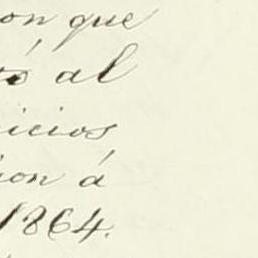 on que
al
icios
ion á
1864.